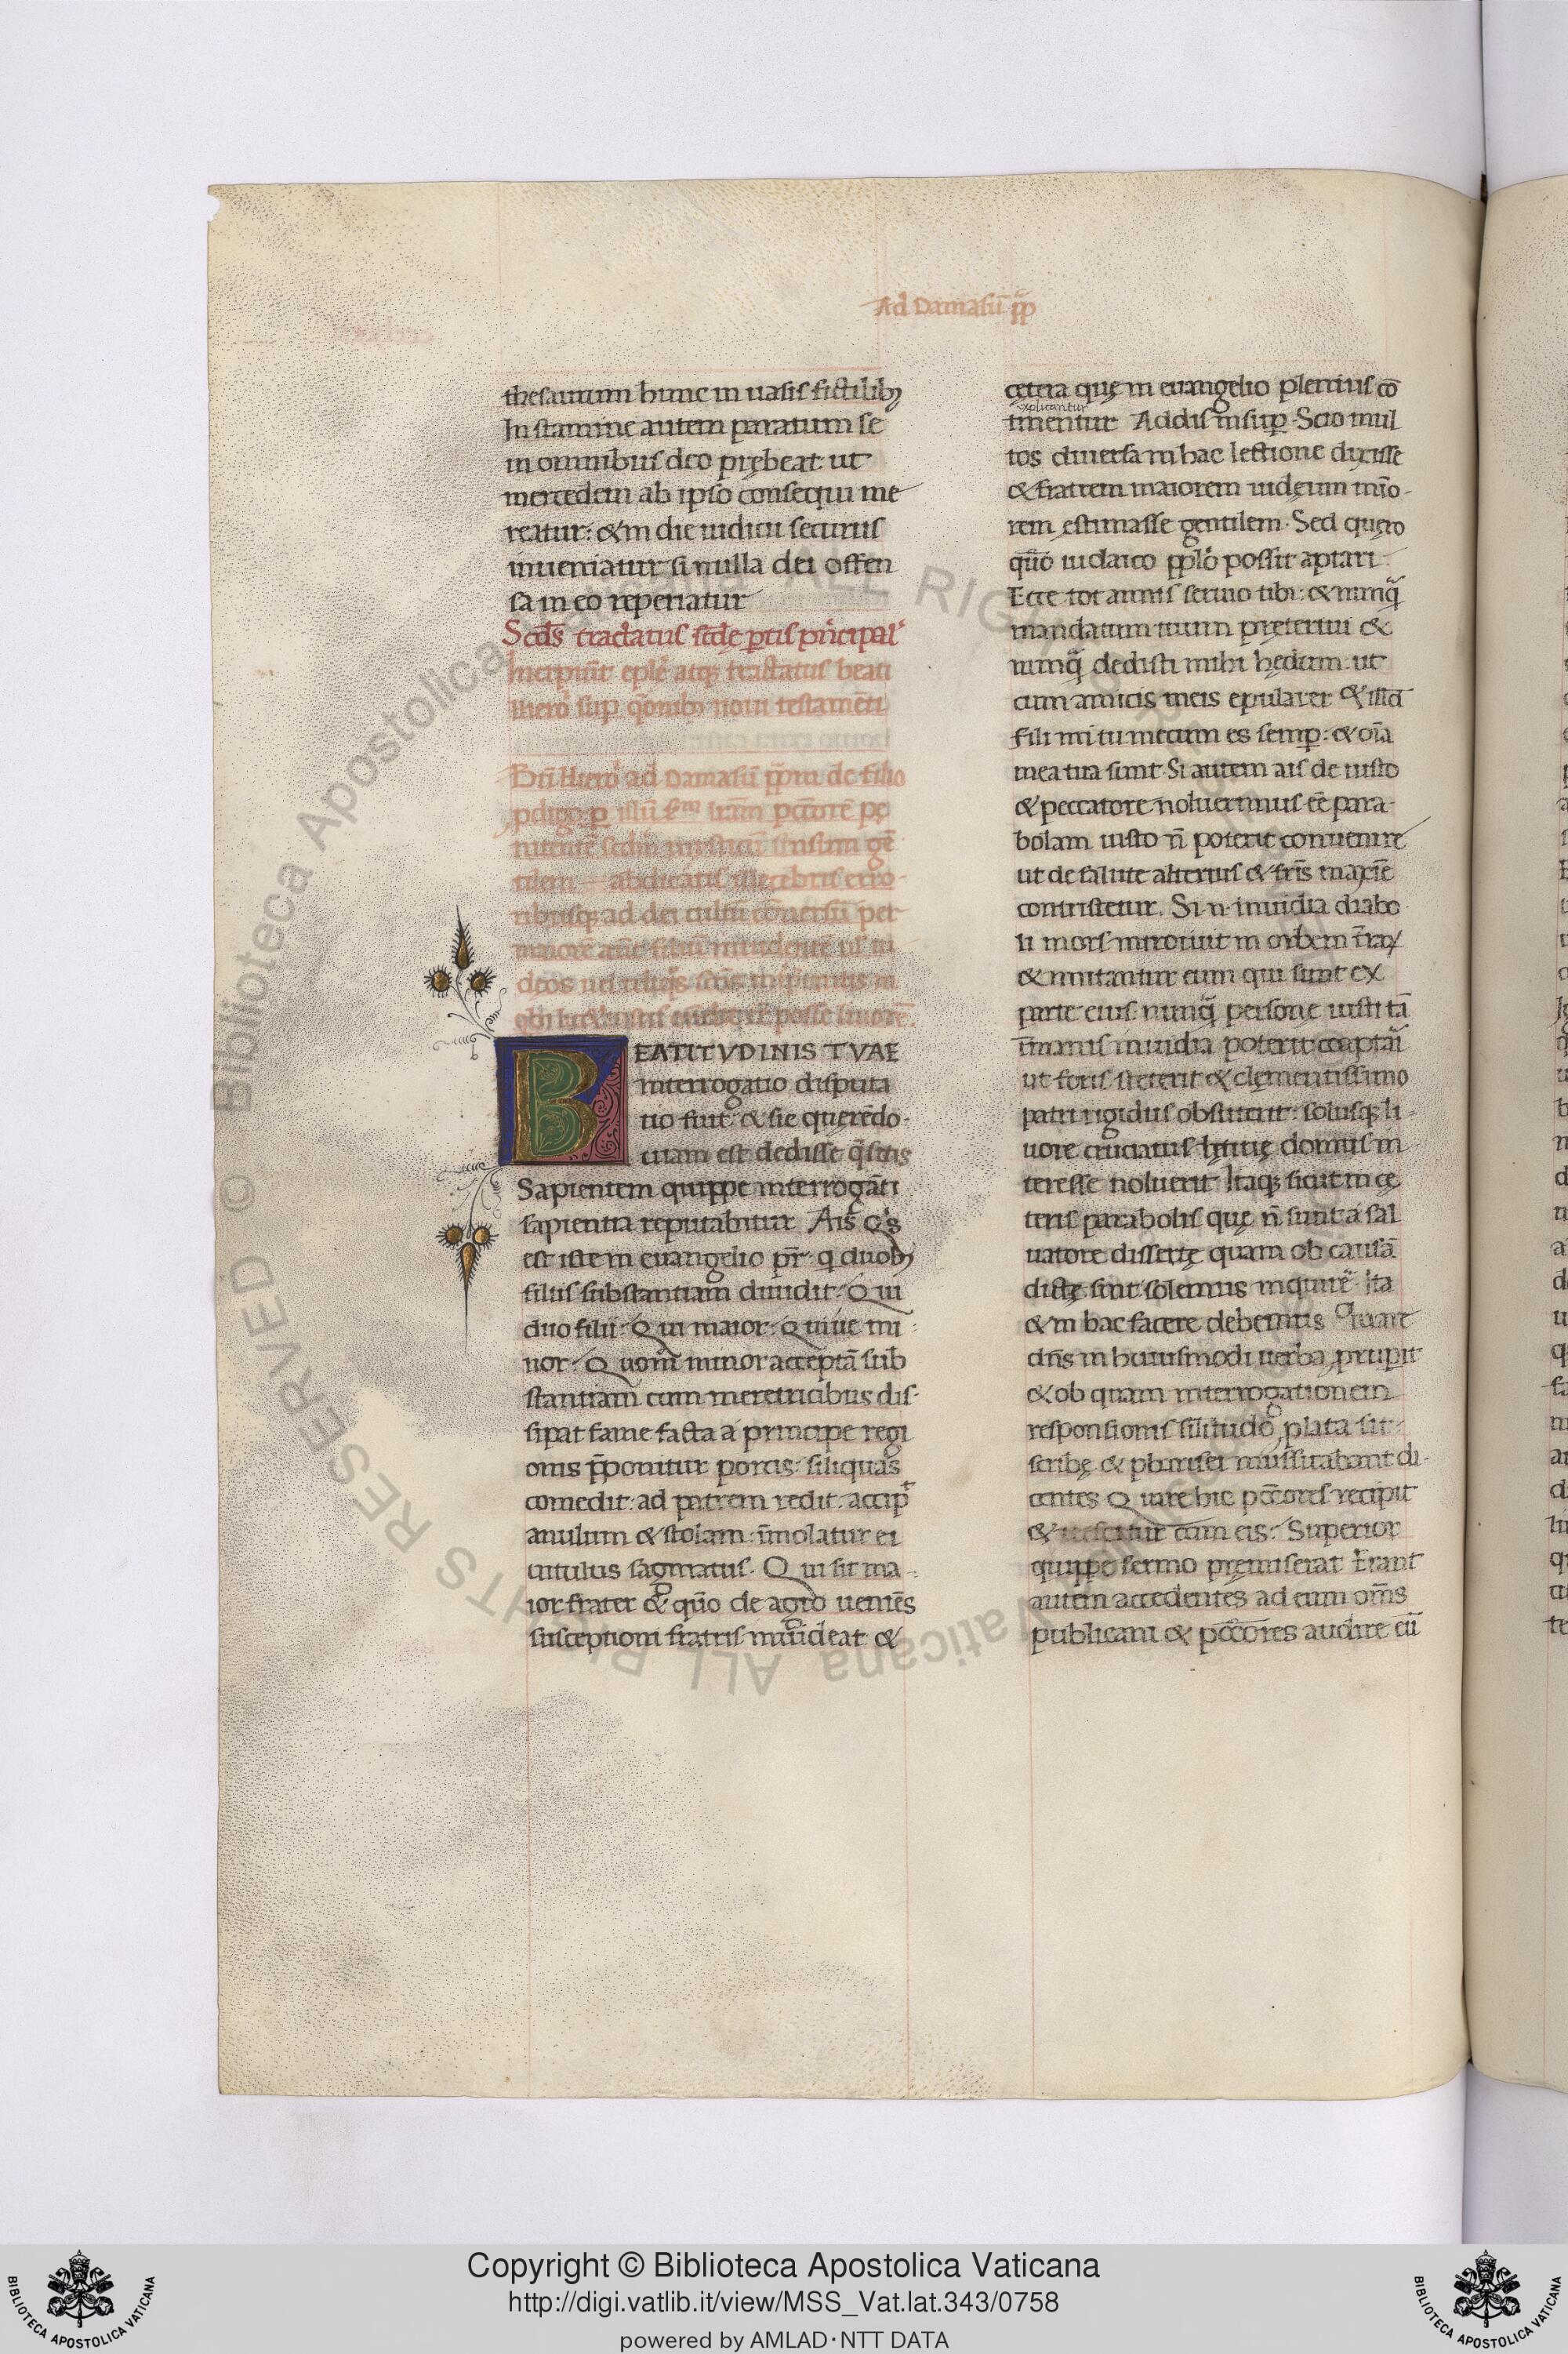 Ad Damasū pp
thesaurum hunc in uasis fictilibꝫ
In stamine autem paratum se
in omnibus deo prębeat ut
mercedem ab ipso consequi me
reatur: & in die iudicii securus
inueniatur si nulla dei offen
sa in eo reperiatur
Scd̄s tractatus scd̄ę ptis principal
Incipiūt eplę atqꝫ tractatus beati
hiero sup q̄onibꝫ noui testamēti
Bti Hiero ad Damasū ppm de filio
maiorē
B EATITVDINIS TVAE
interrogatio disputa
tio fuit: & sic quęrēdo
uiam est dedisse q̄sitis
Sapientem quippe interrogāti
sapientia reputabitur Ais Qⁱs
est iste in euangelio pr̄ q duobꝫ
filiis substantiam diuidit: Qui
duo filii: Qui maior: Qui ue mi
nor: Quom̄ minor acceptā sub
stantiam cum meretricibus dis-
sipat fame facta a principe regi
onis p̄ponitur porcis: siliquas
comedit: ad patrem redit: accip
anulum & stolam: īmolatur ei
uitulus saginatus. Qui sit ma
ior frater & quō de agro ueniēs
susceptioni fratris inuideat &
cętera quę in euangelio plenius cō
explicantur
tinentur Addis insup Scio mul
tos diuersa in hac lectione dixisse
& fratrem maiorem iudęum mīo
rem ęstimasse gentilem. Sed quęro
quō iudaico pplo possit aptari
Ecce tot annis seruio tibi: & nunq̄
mandatum tuum pręteriui &
nunq̄ dedisti mihi hędum ut
cum amicis meis epularer & illd
fili mi tu mecum es semp: & oīa
mea tua sunt. Si autem ais de iusto
& peccatore uoluerimus eē para
bolam iusto n̄ poterit conuenire
ut de salute alterius & fr̄is maxīe
contristetur. Si n. inuidia diabo
li mors introiuit in orbem t̄rarꝝ
& imitantur eum qui sunt ex
parte eius: nunq̄ personę iusti tā
īmanis inuidia poterit coaptari
ut foris steterit & clęmentissimo
patri rigidus obstiterit: solusqꝫ li
uore cruciatus lętitię domus in
teresse noluerit Itaqꝫ sicut in cę
teris parabolis quę n̄ sunt a sal
uatore dissertę quam ob causā
dictę sint solemus inquirē Ita
& in hac facere debemus Quare
dn̄s in huiusmodi uerba prupit
& ob quam interrogationem
responsionis silitudo plata sit
scribę & pharisei mussitabant di-
centes Quare hic pccōres recipit
& uescitur cum eis: Superior
quippe sermo pręmiserat Erant
autem accedentes ad eum om̄s
publicani & pccōres audire eū
Copyright © Biblioteca Apostolica Vaticana
http://digi.vatlib.it/view/MSS_Vat.lat.343/0758
powered by AMLAD·NTT DATA
BIBLIOTECA APOSTOLICA VATICANA
BIBLIOTECA APOSTOLICA VATICANA